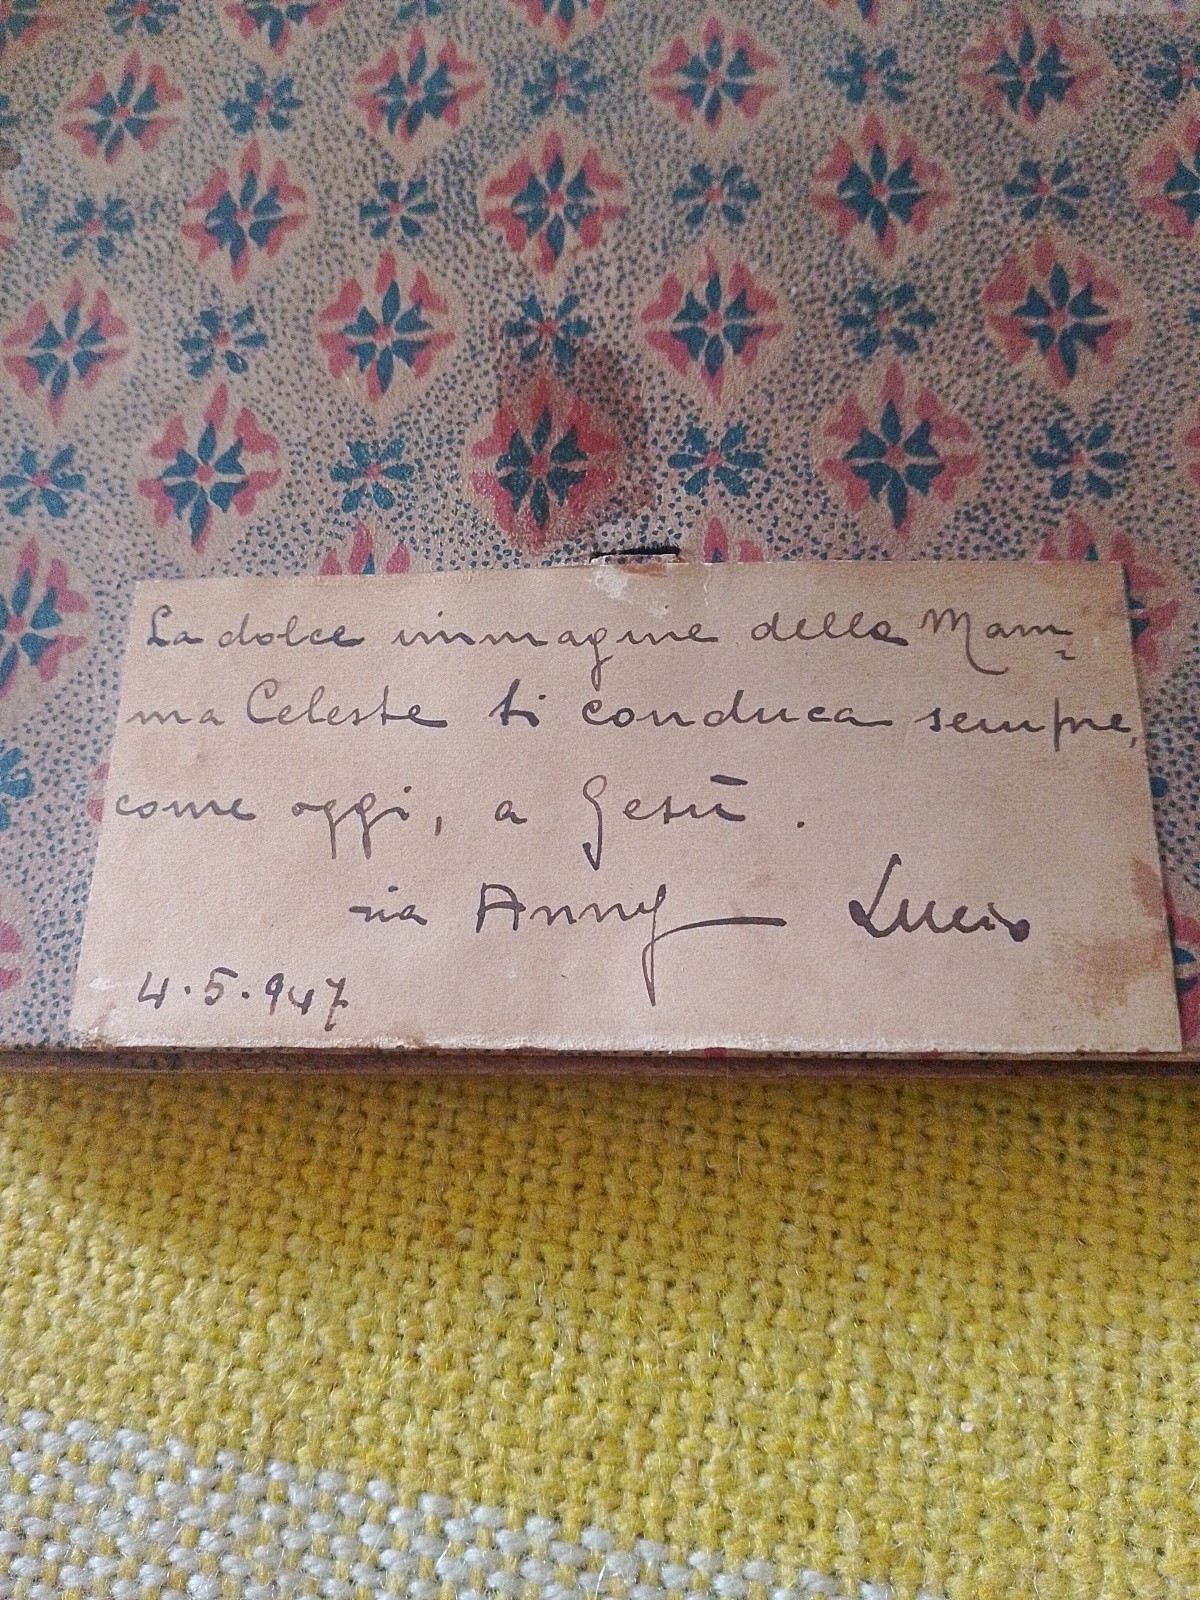 La dolce immagine della Mam=
ma Celeste ti conduca sempre,
come oggi, a Gesù.
zia Anny Lucio
4.5.947